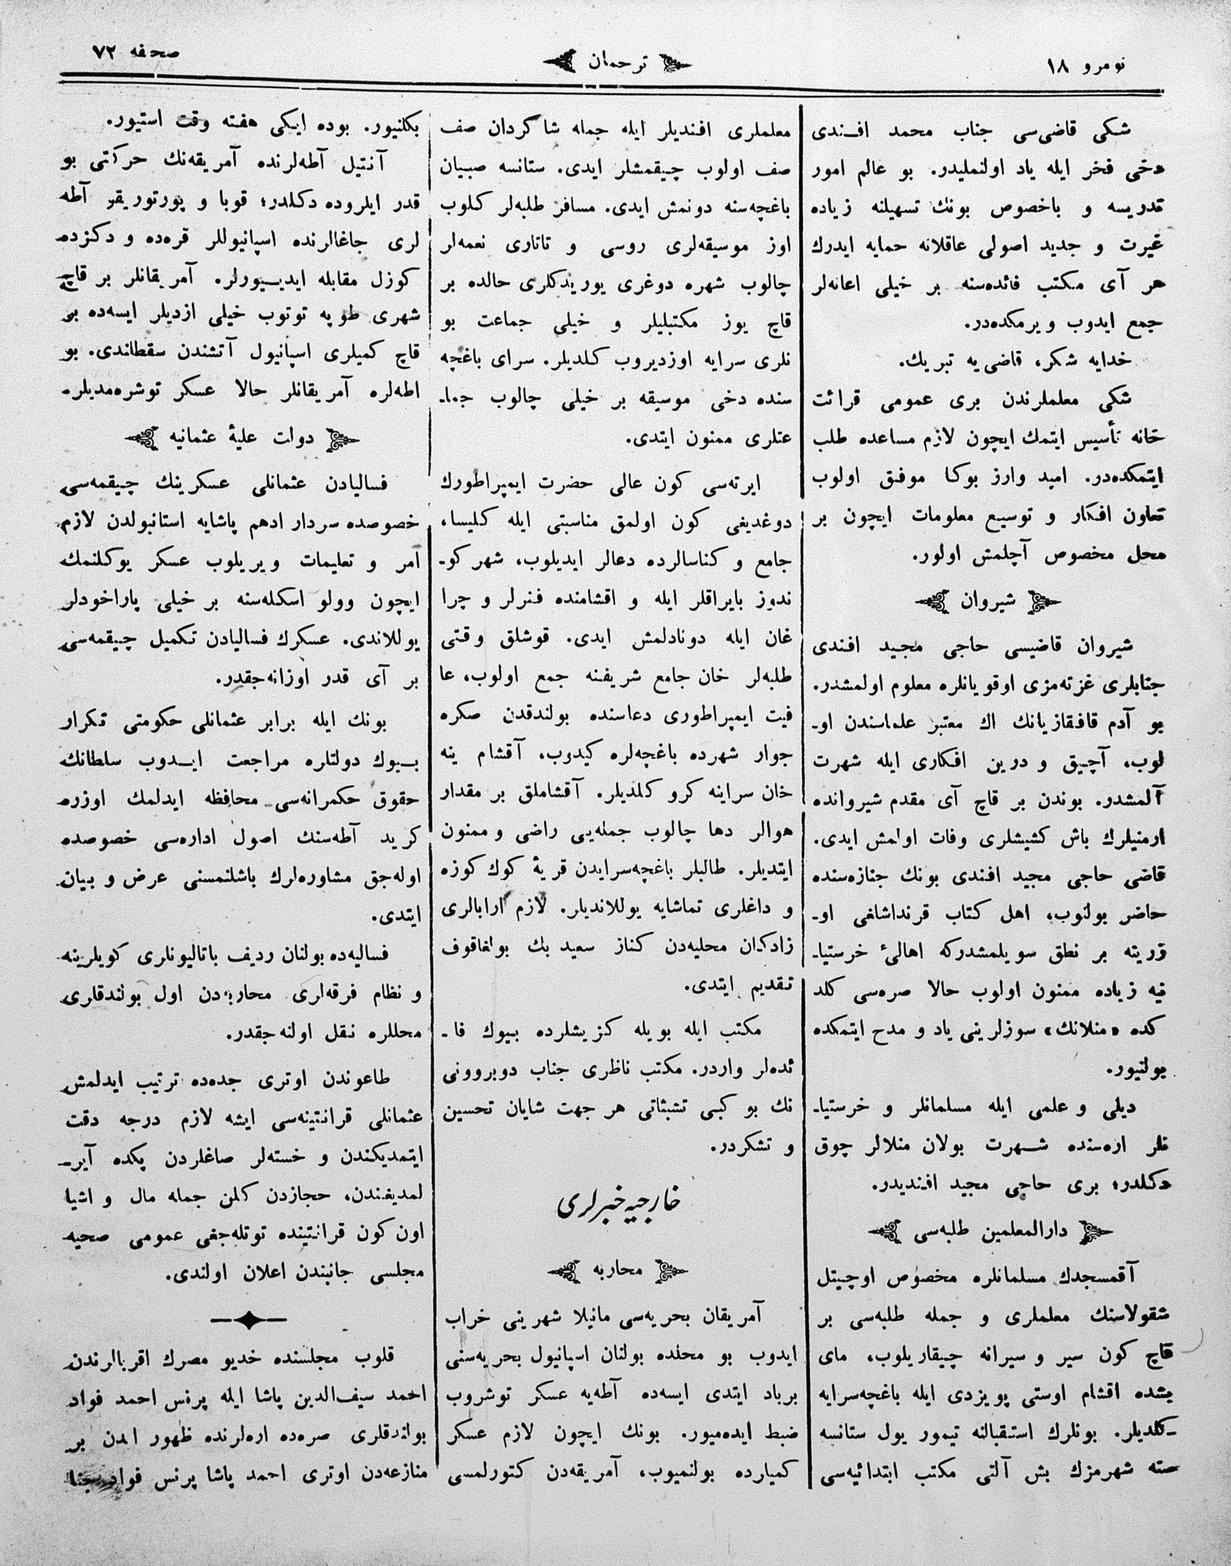 نومرو ١٨
ترجمان
صحفه ٧٢
شكی قاضی‌سی جناب محمد افندی
دخی فخر ایله یاد اولنملیدر. بو عالم امور
تدریسه و باخصوص بونك تسهیلنه زیاده
غیرت و جدید اصولی عاقلانه حمایه ایدرك
هر آی مكتب فائده‌سنه بر خیلی اعانه‌لر
جمع ایدوب ویرمكده‌در.
خدایه شكر، قاضی‌یه تبریك.
شكی معلملرندن بری عمومی قرائت
خانه تأسیس ایتمك ایچون لازم مساعده طلب
ایتمكده‌در. امید وارز بوكا موفق اولوب
تعاون افكار و توسیع معلومات ایچون بر
محل مخصوص آچلمش اولور.
شیروان
شیروان قاضیسی حاجی مجید افندی
جنابلری غزته‌مزی اوقویانلره معلوم اولمشدر.
بو آدم قافقازیانك اك معتبر علماسندن او-
لوب، آچیق و درین افكاری ایله شهرت
آلمشدر. بوندن بر قاچ آی مقدم شیروانده
ارمنیلرك باش كشیشلری وفات اولمش ایدی.
قاضی حاجی مجید افندی بونك جنازه‌سنده
حاضر بولنوب، اهل كتاب قرنداشاغی او-
زرینه بر نطق سویلمشدركه اهالیٔ خرستیا-
نیه زیاده ممنون اولوب حالا صره‌سی كلد
كده «منلانك» سوزلرینی یاد و مدح ایتمكده
بولنیور.
دیلی و علمی ایله مسلمانلر و خرستیا-
نلر اره‌سنده شهرت بولان منلالر چوق
دكلدر؛ بری حاجی مجید افندیدر.
دارالمعلمین طلبه‌سی
آقمسجدك مسلمانلره مخصوص اوچیتل
شقولاسنك معلملری و جمله طلبه‌سی بر
قاچ كون سیر و سیرانه چیقاریلوب، مای
یشده اقشام اوستی پویزدی ایله باغچه‌سرایه
كلدیلر. بونلرك استقبالنه تیمور یول ستانسه
سنه شهرمزك بش آلتی مكتب ابتدائیه‌سی
معلملری افندیلر ایله جمله شاكردان صف
صف اولوب چیقمشلر ایدی. ستانسه صبیان
باغچه‌سنه دونمش ایدی. مسافر طلبه‌لر كلوب
اوز موسیقه‌لری روسی و تاتاری نغمه‌لر
چالوب شهره دوغری یوریدكلری حالده بر
قاچ یوز مكتبلیلر و خیلی جماعت بو
نلری سرایه اوزدیروب كلدیلر. سرای باغچه
سنده دخی موسیقه بر خیلی چالوب جما-
عتلری ممنون ایتدی.
ایرته‌سی كون عالی حضرت ایمپراطورك
دوغدیغی كون اولمق مناسبتی ایله كلیسا،
جامع و كناسالرده دعالر ایدیلوب، شهر كو-
ندوز بایراقلر ایله و اقشامنده فنرلر و چرا
غان ایله دونادلمش ایدی. قوشلق وقتی
طلبه‌لر خان جامع شریفنه جمع اولوب، عا
فیت ایمپراطوری دعاسنده بولندقدن صكره
جوار شهرده باغچه‌لره كیدوب، آقشام ینه
خان سراینه كرو كلدیلر. آقشاملق بر مقدار
هوالر دها چالوب جمله‌یی راضی و ممنون
ایتدیلر. طالبلر باغچه‌سرایدن قریهٔ كوك كوزه
و داغلری تماشایه یوللاندیلر. لازم ارابالری
زادكدان محلیه‌دن كناز سعید بك بولغاقوف
تقدیم ایتدی.
مكتب ایله بویله كزیشلرده بیوك فا-
ئده‌لر واردر. مكتب ناظری جناب دوبروونی
نك بو كبی تشبثاتی هر جهت شایان تحسین
و تشكردر.
خارجیه خبرلری
محاربه
آمریقان بحریه‌سی مانیلا شهرینی خراب
ایدوب بو محلده بولنان اسپانیول بحریه‌سنی
برباد ایتدی ایسه‌ده آطه‌یه عسكر توشروب
ضبط ایده‌میور. بونك ایچون لازم عسكر
كمیارده بولنمیوب، آمریقه‌دن كتورلمسی
بكلنیور. بوده ایكی هفته وقت استیور.
آنتیل آطه‌لرنده آمریقه‌نك حركتی بو
قدر ایلروده دكلدر؛ قوبا و پورتوریقو آطه
لری جاغالرنده اسپانیوللر قره‌ده و دكزده
كوزل مقابله ایدییورلر. آمریقانلر بر قاچ
شهری طوپه توتوب خیلی ازدیلر ایسه‌ده بر
قاچ كمیلری اسپانیول آتشندن سقطلندی. بو
اطه‌لره آمریقانلر حالا عسكر توشره‌مدیلر-
دولت علیهٔ عثمانیه
فسالیادن عثمانلی عسكرینك چیقمه‌سی
خصوصده سردار ادهم پاشایه استانبولدن لازم
امر و تعلیمات ویریلوب عسكر یوكلنمك
ایچون وولو اسكله‌سنه بر خیلی پاراخودلر
یوللاندی. عسكرك فسالیادن تكمیل چیقمه‌سی
بر آی قدر اوزانه‌جقدر.
بونك ایله برابر عثمانلی حكومتی تكرار
بیوك دولتلره مراجعت ایدوب سلطانك
حقوق حكمرانه‌سی محافظه ایدلمك اوزره
كرید آطه‌سنك اصول اداره‌سی خصوصده
اوله‌جق مشاوره‌لرك باشلنمسنی عرض و بیان
ایتدی.
فسالیه‌ده بولنان ردیف باتالیونلری كویلرینه
و نظام فرقه‌لری محاربه‌دن اول بولندقلری
محللره نقل اولنه‌جقدر.
طاعوندن اوتری جده‌ده ترتیب ایدلمش
عثمانلی قرانتینه‌سی ایشه لازم درجه دقت
ایتمدیكندن و خسته‌لر صاغلردن پكده آیر-
لمدیغندن، حجازدن كلن جمله مال و اشیا
اون كون قرانتینده توتله‌جغی عمومی صحیه
مجلسی جانبندن اعلان اولندی.
قلوب مجلسنده خدیو مصرك اقربالرندن
احمد سیف‌الدین پاشا ایله پرنس احمد فواد
بولندقلری صره‌ده اره‌لرنده ظهور ایدن بر
منازعه‌دن اوتری احمد پاشا پرنس فواد جنا